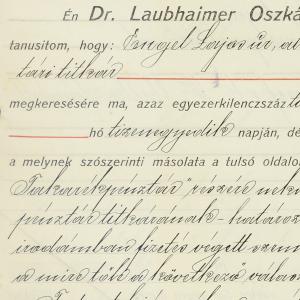 Én Dr. Laubhaimer Oszká
tanusitom, hogy: Engel Lajos úr, a
tári titkár
megkeresésére ma, azaz egyezerkilenczszáz t
hó tizenegyedik napján, dé
a melynek szószerinti másolata a tulsó oldalo
Takarékpénztár" részére nek
pénztár titkárának - határoz
irodámban fizetés végett szem
a mire tőle a következő válas